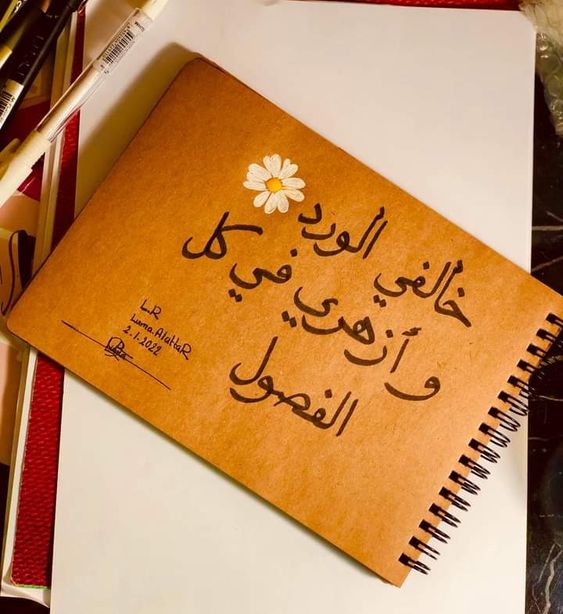 خالفي الورد
و أزهري في كل
الفصول
L.R
Luma.AlattaR
2.1.2022